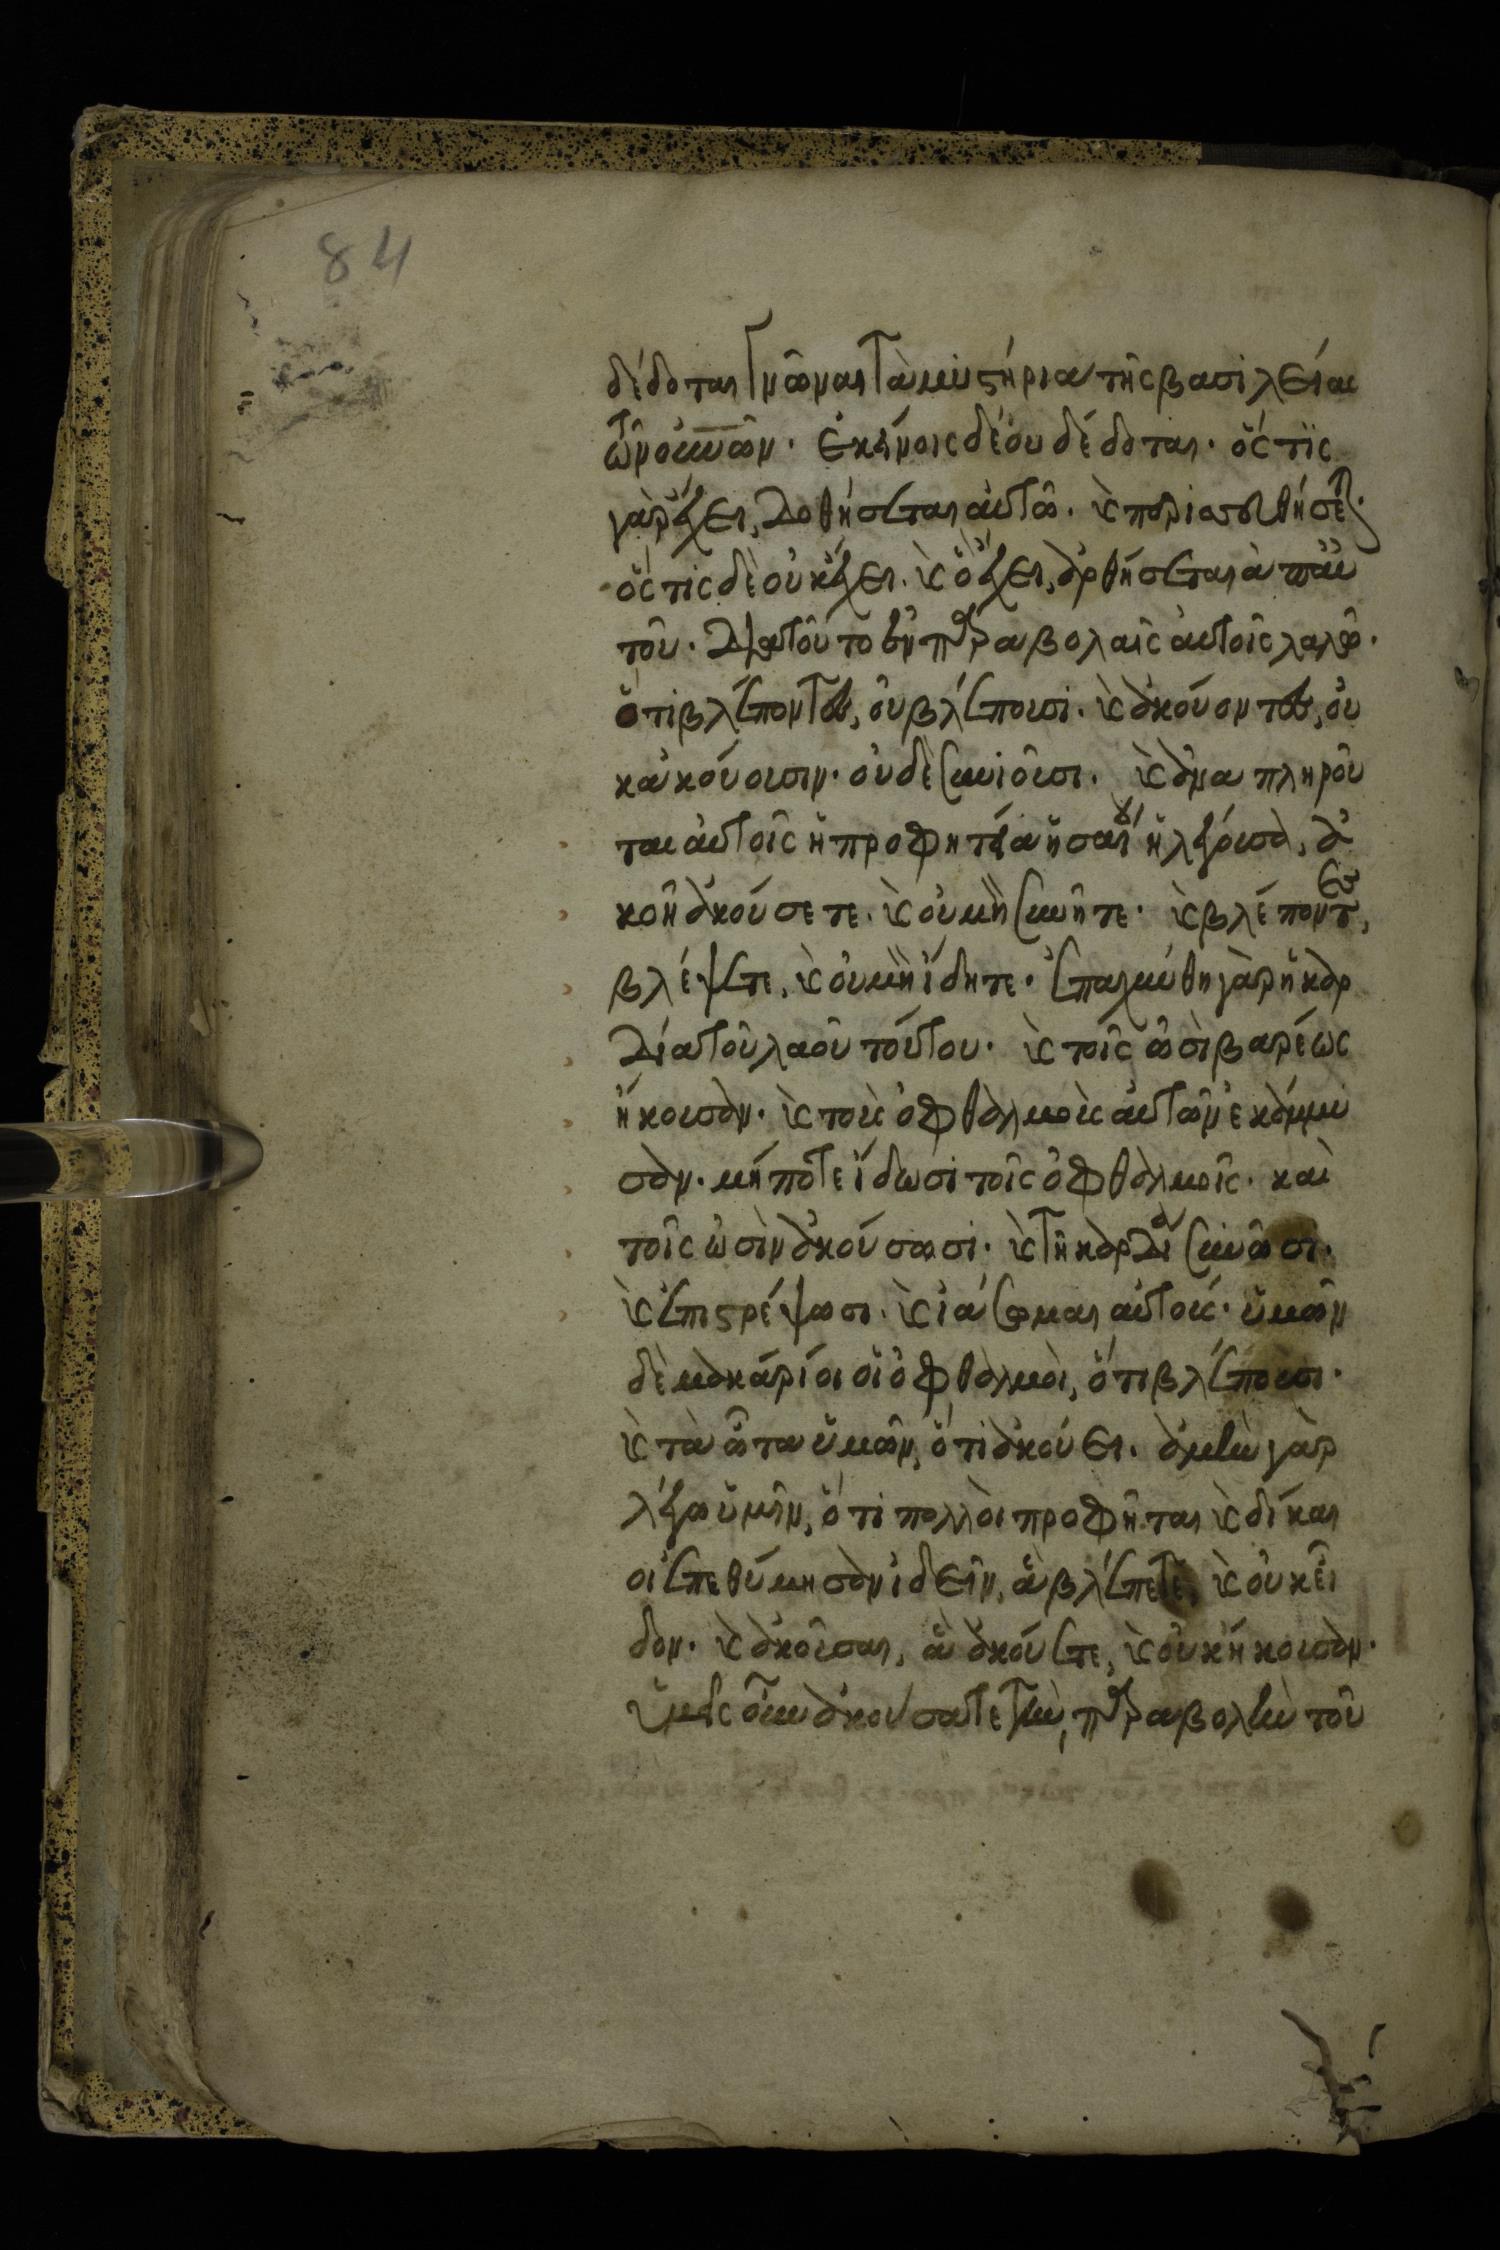 84
δέδοται γνῶναι τὰ μυστήρια τῆς βασιλείας
τῶν οὐνῶν. ἐκείνοις δὲ οὐ δέδοται. ὅστις
γὰρ ἔχει, δοθήσεται αὐτῶ. καὶ περισσευθήσεται.
ὅστις δὲ οὐκ ἔχει. καὶ ὃ ἔχει, ἀρθήσεται ἀπ' αὐ
τοῦ. διατοῦτο ἐν παραβολαῖς αὐτοῖς λαλῶ.
ὅτι βλέποντες, οὐ βλέπουσι. καὶ ἀκούοντες, οὐ
κ ἀκούουσιν. οὐδὲ συνιοῦσι. καὶ ἀναπληροῦ
ται αὐτοῖς ἡ προφητεία ἡσαΐου ἡ λέγουσα, ἀ
κοῆ ἀκούσετε. καὶ οὐ μὴ συνῆτε. καὶ βλέποντες,
βλέψετε, καὶ οὐ μὴ ἴδητε. ἐπαχύνθη γὰρ ἡ καρ
δία τοῦ λαοῦ τούτου. καὶ τοῖς ὠσὶ βαρέως
ἤκουσαν. καὶ τοὺς ὀφθαλμοὺς αὐτῶν ἐκάμμυ
σαν. μήποτε ἴδωσι τοῖς ὀφθαλμοῖς. καὶ
τοῖς ὠσὶν ἀκούσωσι. καὶ τῆ καρδία συνῶσι.
καὶ ἐπιστρέψωσι. καὶ ἰάσομαι αὐτούς. ὑμῶν
δὲ μακάριοι οἱ ὀφθαλμοὶ, ὅτι βλέπουσι.
καὶ τὰ ὦτα ὑμῶν, ὅτι ἀκούει. ἀμὴν γὰρ
λέγω ὑμῖν, ὅτι πολλοὶ προφῆται καὶ δίκαι
οι ἐπεθύμησαν ἰδεῖν, ἃ βλέπετε, καὶ οὐκ εἶ
δον. καὶ ἀκοῦσαι, ἃ ἀκούετε, καὶ οὐκ ἤκουσαν.
ὑμεῖς οὖν ἀκούσατε τὴν παραβολὴν τοῦ